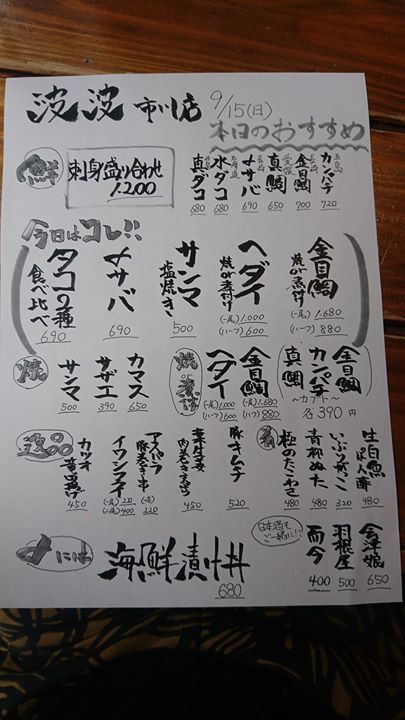 波波 市川店
9/15(日)
本日のおすすめ
鮮
刺身盛り合わせ
1.200
カンパチ 720
長崎 金目鯛 900
愛媛 真鯛 650
長崎 〆サバ 690
北海道 水ダコ 680
真ダコ 680
今日はコレ!!
金目鯛 焼or煮付け (一尾)1.680 (ハーフ)880
ヘダイ 焼or煮付け (一尾)1.000 (ハーフ)600
サンマ 塩焼き 500
〆サバ 690
タコ2種 食べ比べ 690
金目鯛
カンパチ
真鯛
〜カブト〜
各390円
焼or煮
金目鯛 (一尾)1.680 (ハーフ)880
ヘダイ (一尾)1.000 (ハーフ)600
焼
カマス 650
サザエ 390
サンマ 500
生白魚 480
いぶりがっこ 320
青柳ぬた 480
極のたこわさ 480
逸品
豚キムチ 520
新生姜肉巻き 450
アスパラ豚巻き串 (一本)220
イワシフライ (一尾)220 (二尾)400
カツオ竜田揚げ 450
日本酒もご一緒に!!
会津娘 650
羽根屋 500
而今 400
〆には
海鮮漬け丼
680